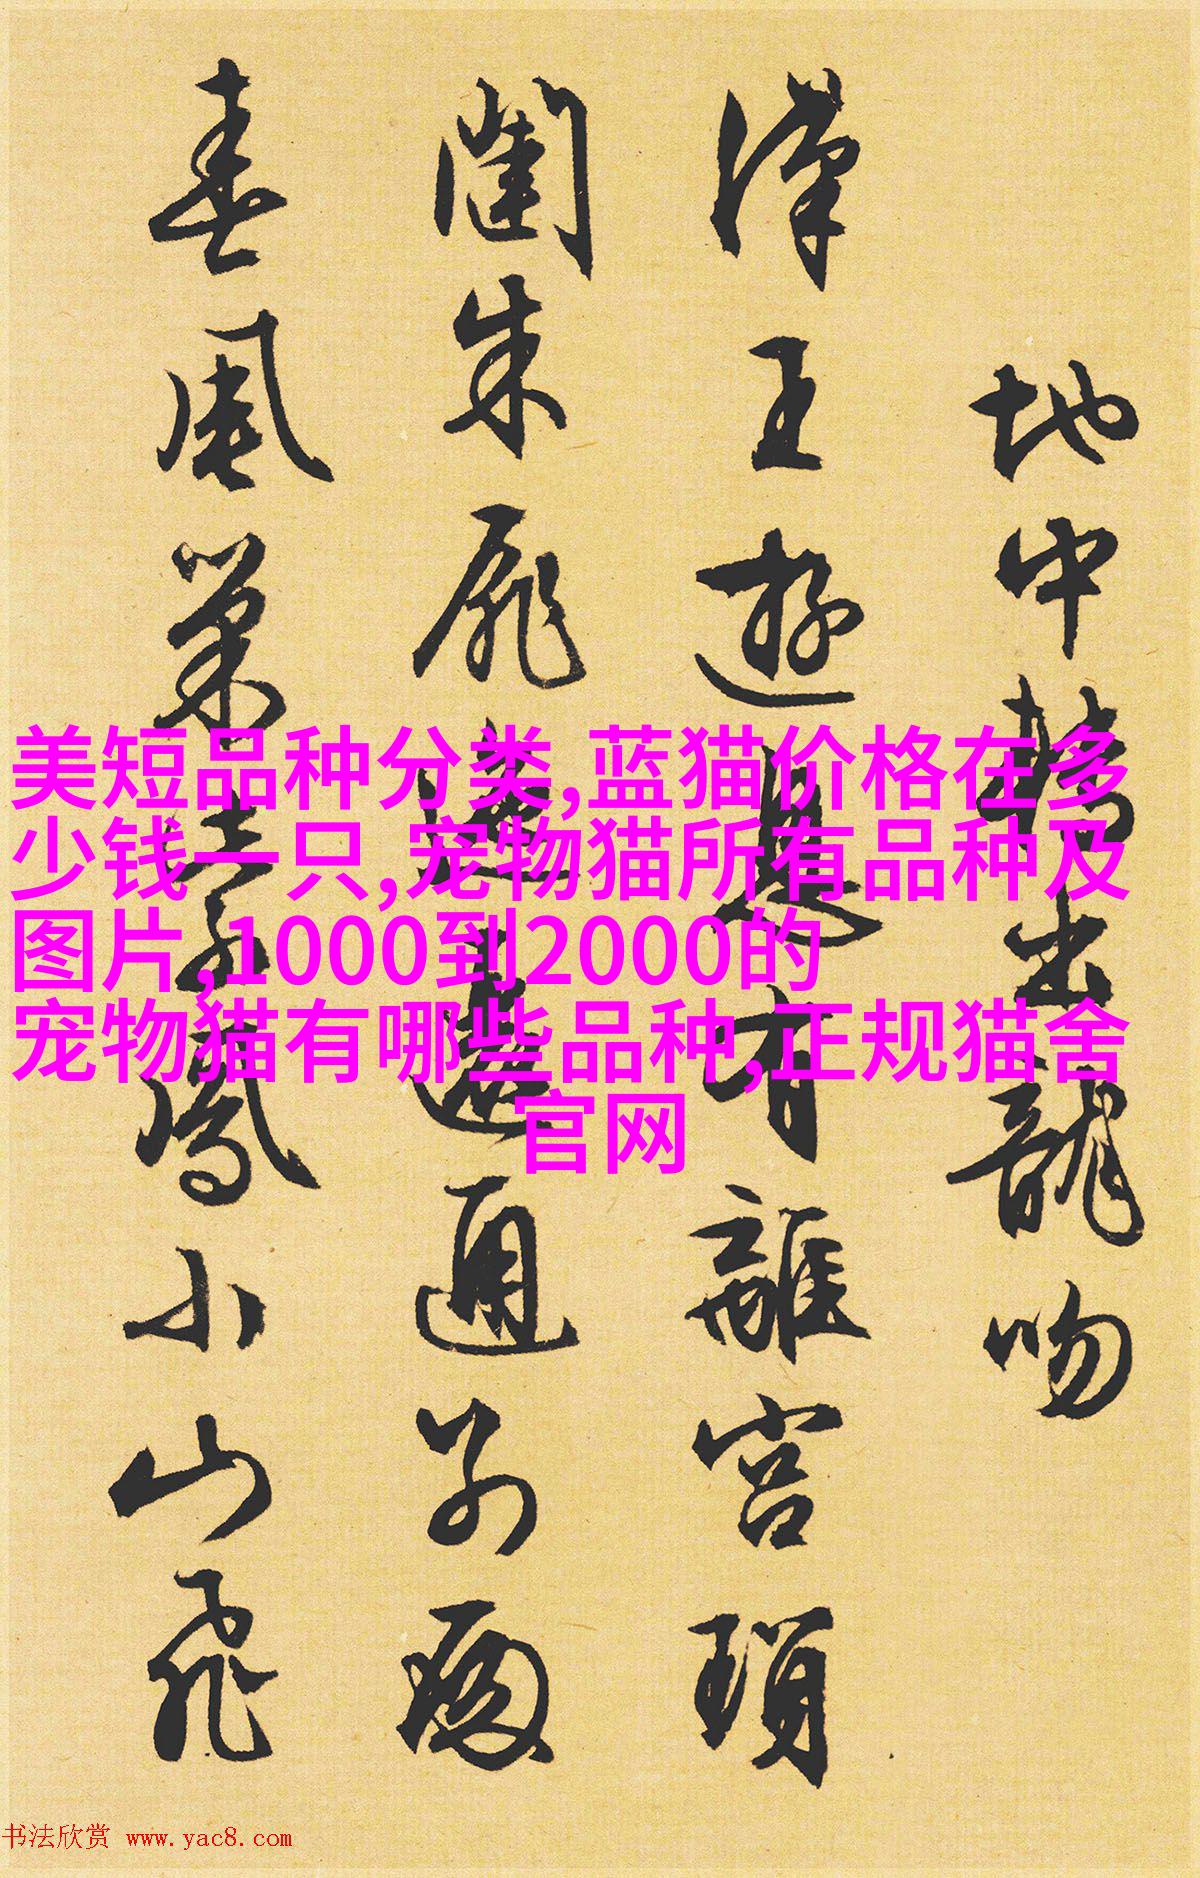 地中轎出龍吻
漢王遊息有離宮瑣
闈朱扉邐迤通別殿
春風巢翠鳳小山飛
美短品种分类,蓝猫价格在多
少钱一只,宠物猫所有品种及
图片,1000到2000的
宠物猫有哪些品种,正规猫舍
官网
书法欣赏 www.yac8.com